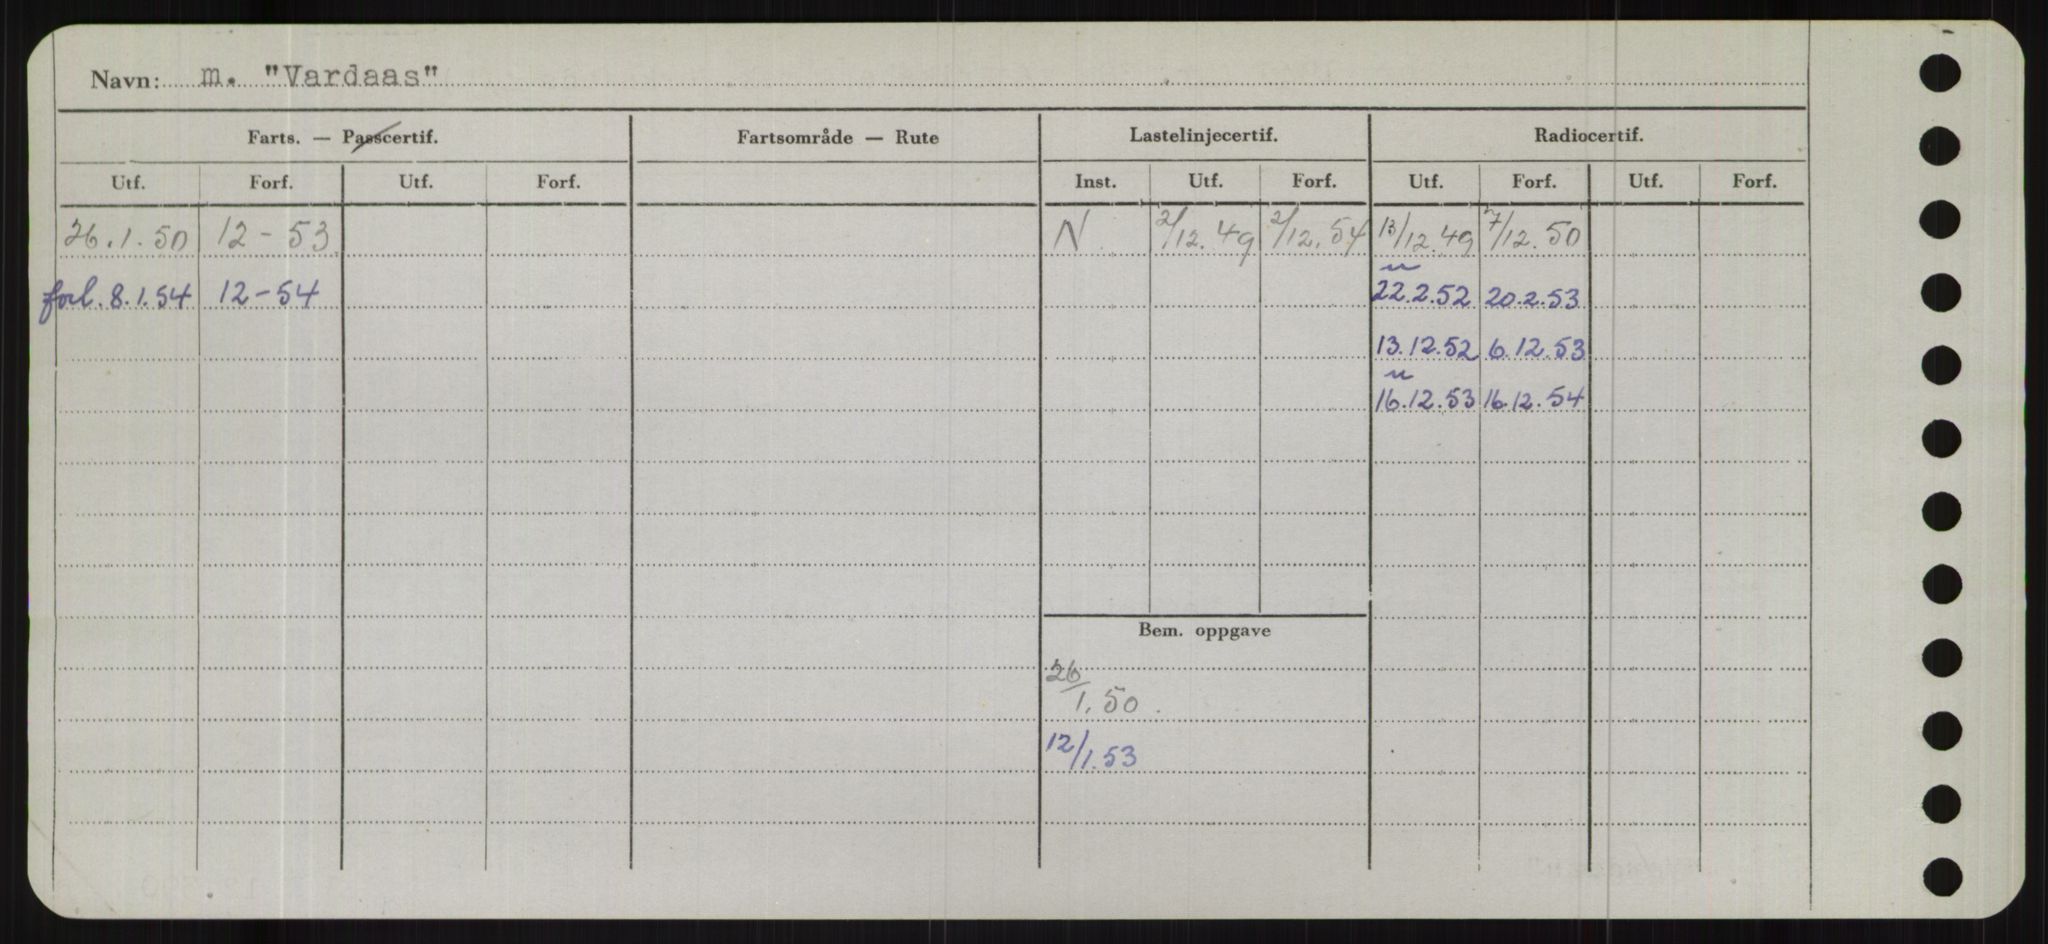 Navn: m. "Vardaas"
Farts. — Passcertif. Fartsområde — Rute Lastelinjecertif. Radiocertif.
Utf. Forf. Utf. Forf. Inst. Utf. Forf. Utf. Forf. Utf. Forf.
26.1.50 12-53 N 2/12.49 2/12.54 13/12.49 7/12.50
forl. 8.1.54 12-54 22.2.52 20.2.53
13.12.52 6.12.53
16.12.53 16.12.54
Bem. oppgave
26/1.50.
12/1.53